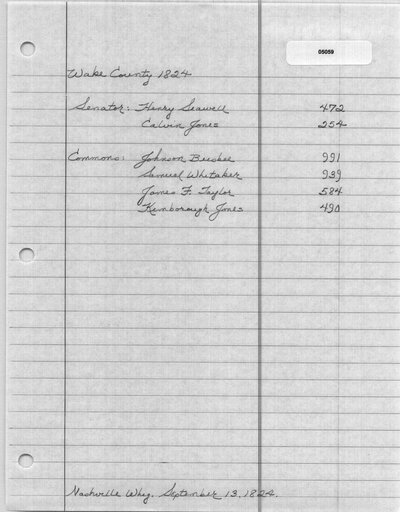 05059
Wake County 1824
Senator: Henry Seawell 472
Calvin Jones 254
Commons: Johnson Busbee 991
Samuel Whitaker 939
James F. Taylor 584
Kimborough Jones 490
Nashville Whig, September 13, 1824.